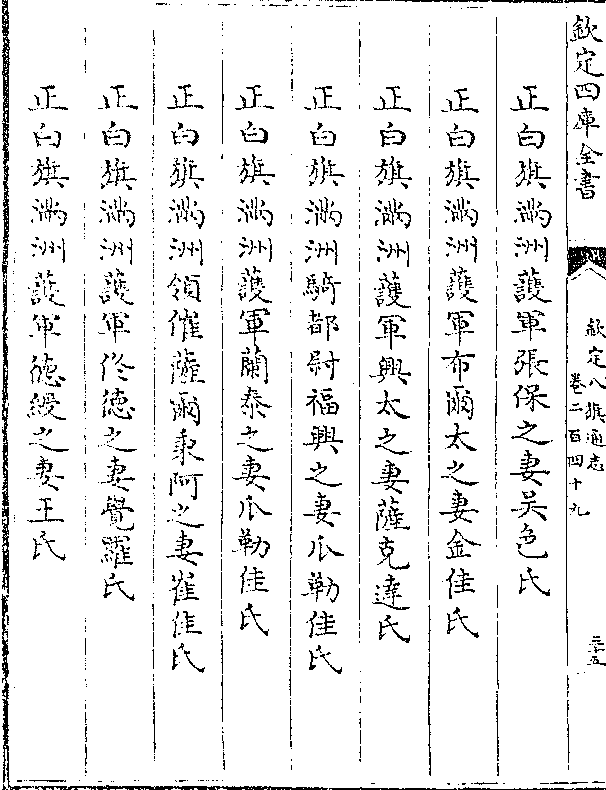 欽定四庫全書
欽定八旗通志
卷二百四十九
三十五
正白旗滿洲護軍張保之妻吴色氏
正白旗滿洲護軍布爾太之妻金佳氏
正白旗滿洲護軍興太之妻薩克達氏
正白旗滿洲騎都尉福興之妻瓜勒佳氏
正白旗滿洲護軍蘭泰之妻瓜勒佳氏
正白旗滿洲領催薩爾秉阿之妻崔佳氏
正白旗滿洲護軍佟德之妻覺羅氏
正白旗滿洲護軍德綬之妻王氏